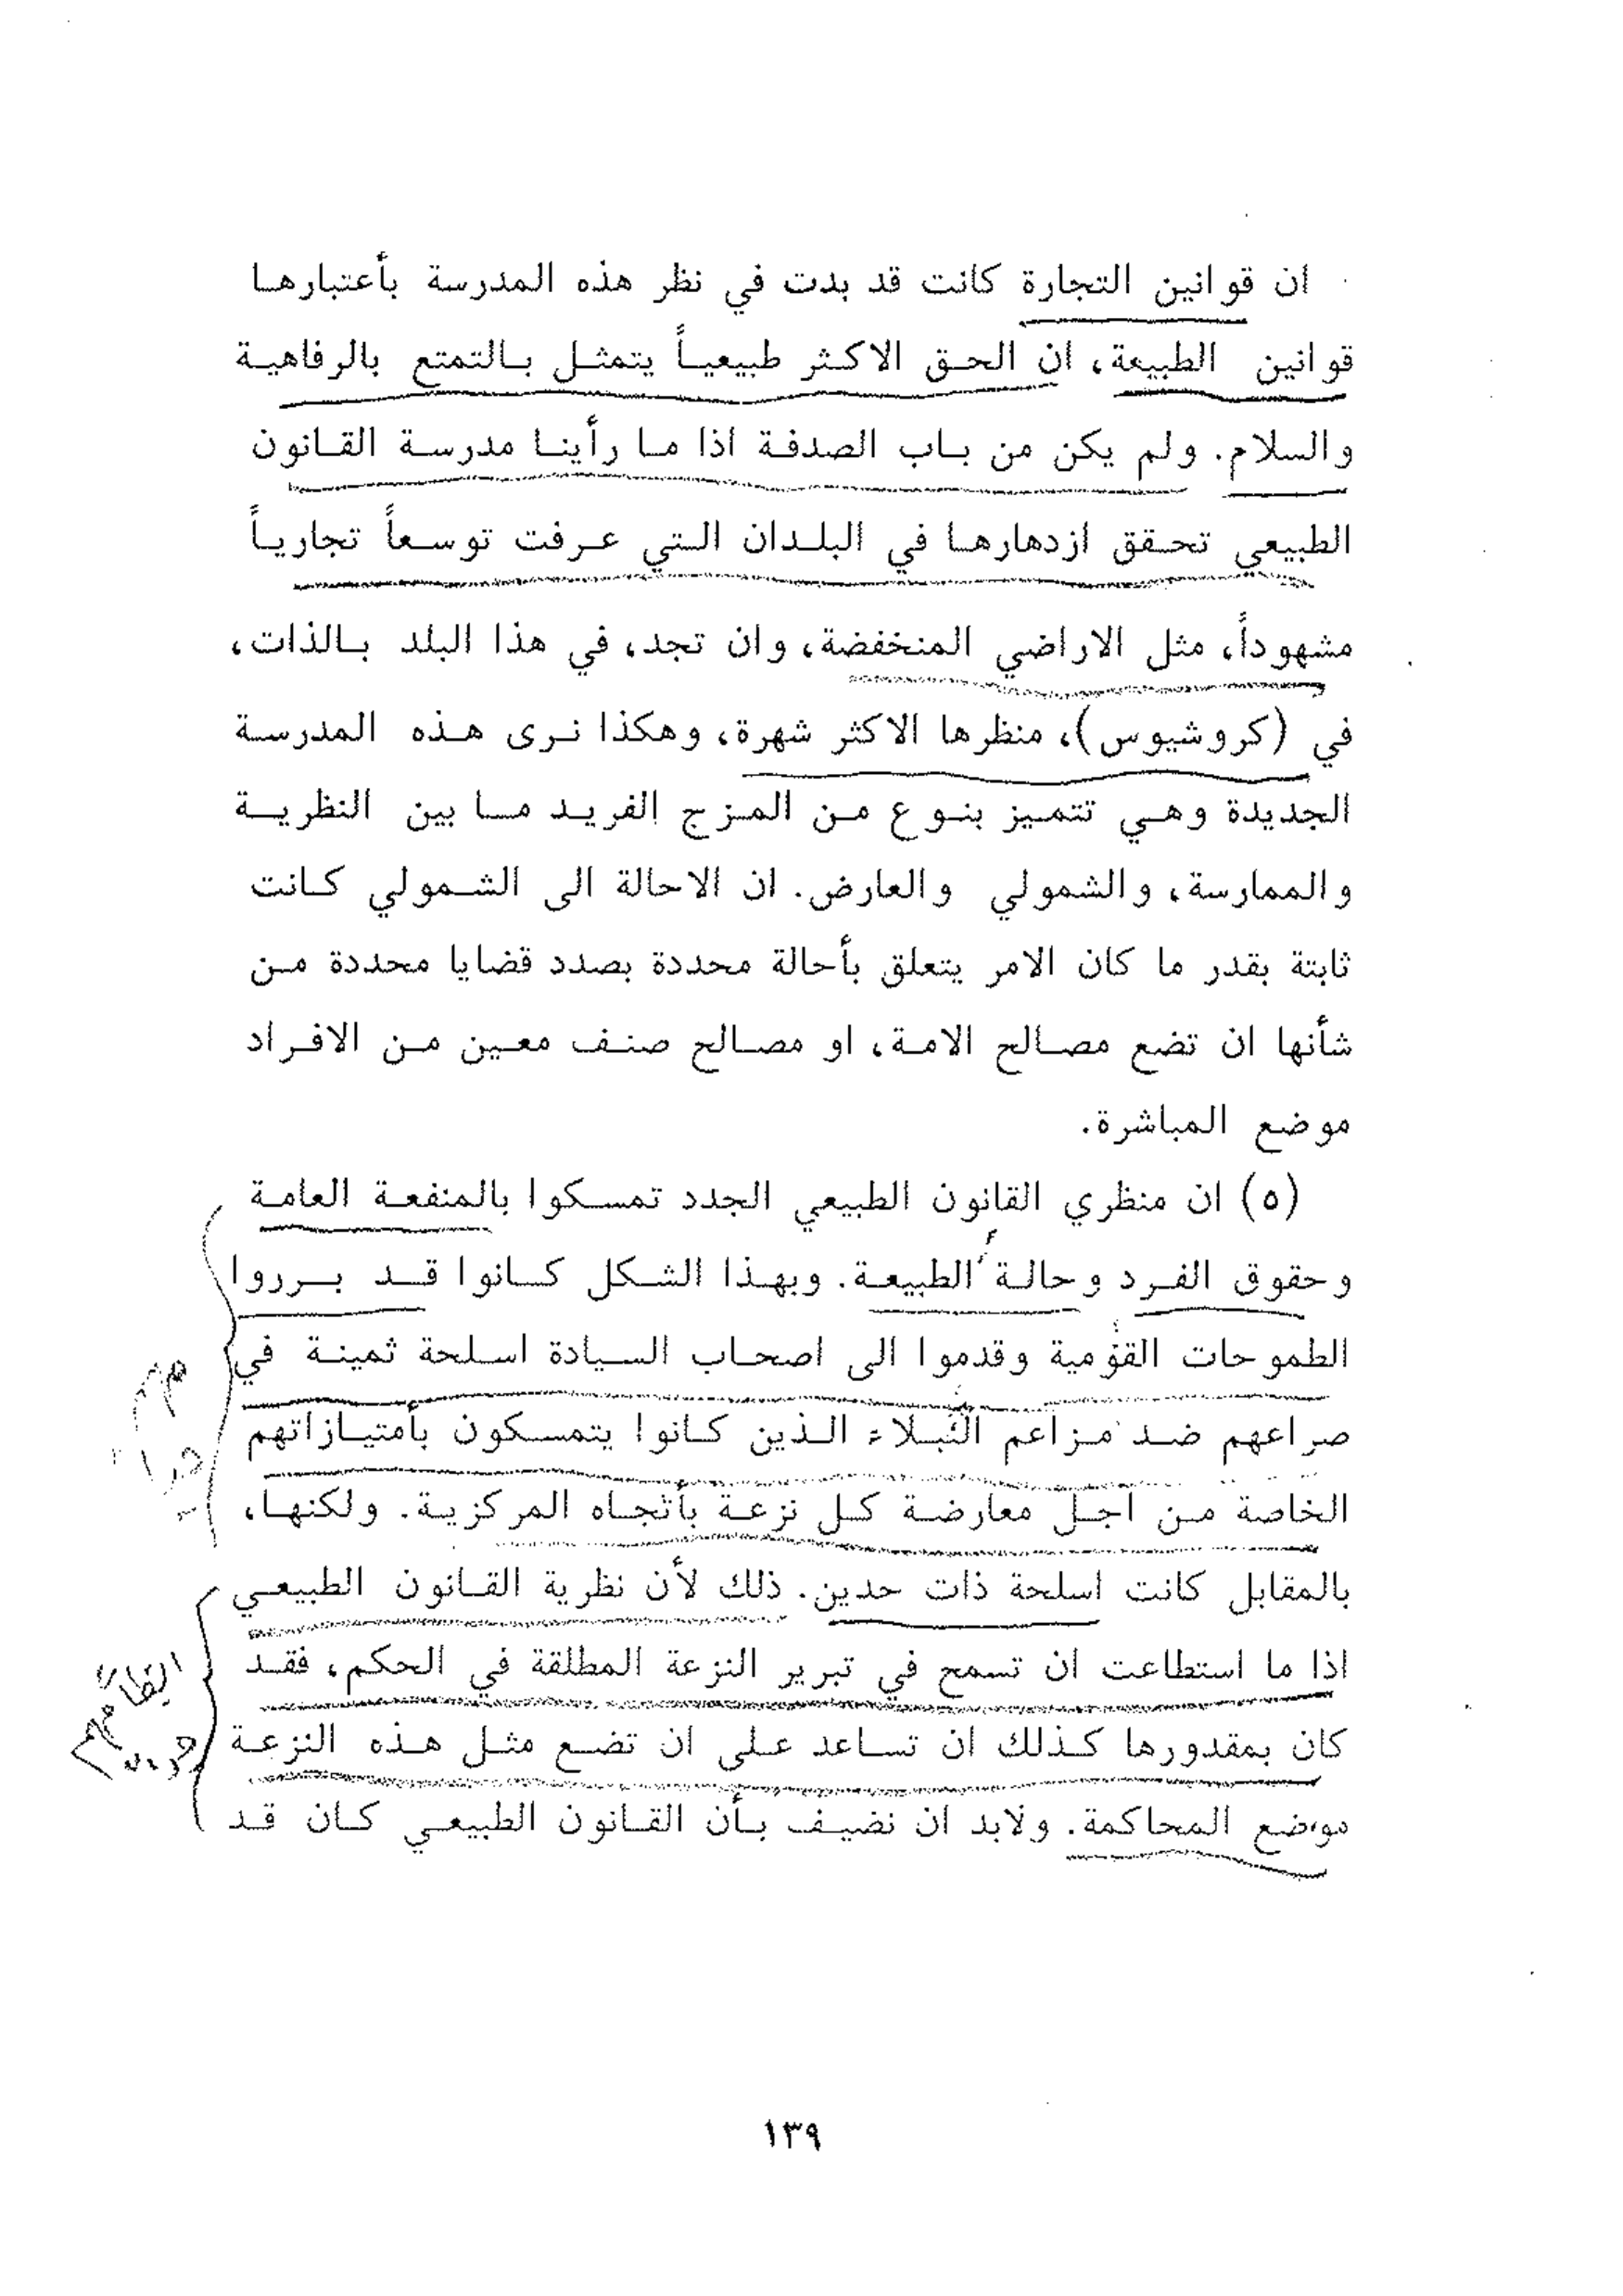 ان قوانين التجارة كانت قد بدت في نظر هذه المدرسة بأعتبارها
قوانين الطبيعة، ان الحق الاكثر طبيعياً يتمثل بالتمتع بالرفاهية
والسلام. ولم يكن من باب الصدفة اذا ما رأينا مدرسة القانون
الطبيعي تحقق ازدهارها في البلدان التي عرفت توسعاً تجارياً
مشهوداً، مثل الاراضي المنخفضة، وان تجد، في هذا البلد بالذات،
في (كروشيوس)، منظرها الاكثر شهرة، وهكذا نرى هذه المدرسة
الجديدة وهي تتميز بنوع من المزج الفريد ما بين النظرية
والممارسة، والشمولي والعارض. ان الاحالة الى الشمولي كانت
ثابتة بقدر ما كان الامر يتعلق بأحالة محددة بصدد قضايا محددة من
شأنها ان تضع مصالح الامة، او مصالح صنف معين من الافراد
موضع المباشرة.
(٥) ان منظري القانون الطبيعي الجدد تمسكوا بالمنفعة العامة
وحقوق الفرد وحالة الطبيعة. وبهذا الشكل كانوا قد برروا
الطموحات القومية وقدموا الى اصحاب السيادة اسلحة ثمينة في
صراعهم ضد مزاعم النبلاء الذين كانوا يتمسكون بأمتيازاتهم
الخاصة من أجل معارضة كل نزعة بأتجاه المركزية. ولكنها،
بالمقابل كانت اسلحة ذات حدين. ذلك لأن نظرية القانون الطبيعي
اذا ما استطاعت ان تسمح في تبرير النزعة المطلقة في الحكم، فقد
كان بمقدورها كذلك ان تساعد على ان تضع مثل هذه النزعة
موضع المحاكمة. ولابد ان نضيف بأن القانون الطبيعي كان قد
١٣٩